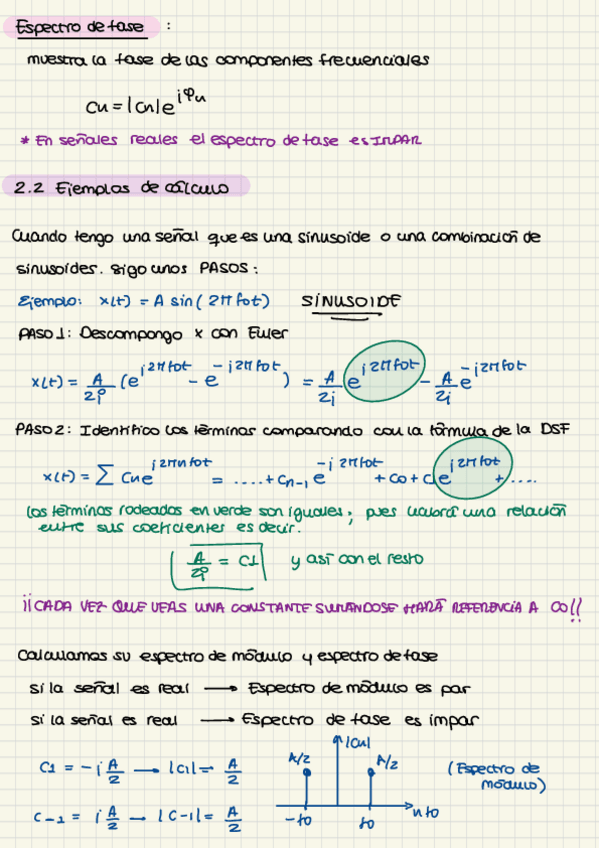 Espectro de fase :
muestra la fase de las componentes frecuenciales
Cn = |Cn|e^{jφn}
* En señales reales el espectro de fase es IMPAR
2.2 Ejemplos de cálculo
Cuando tengo una señal que es una sinusoide o una combinación de
sinusoides. Sigo unos PASOS:
Ejemplo: x(t) = A sin(2πfot) SINUSOIDE
PASO 1: Descompongo x con Euler
x(t) = A/2j (e^{j2πfot} - e^{-j2πfot}) = A/2j e^{j2πfot} - A/2j e^{-j2πfot}
PASO 2: Identifico los términos comparando con la fórmula de la DSF
x(t) = ∑ Cn e^{j2πnfot} = ....+ Cn-1 e^{-j2πfot} + C0 + C e^{j2πfot} + ....
Los términos rodeados en verde son iguales, pues habrá una relación
entre sus coeficientes es decir.
A/2j = C1 y así con el resto
¡¡CADA VEZ QUE VEAS UNA CONSTANTE SUMANDOSE HARÁ REFERENCIA A C0!!
Calculamos su espectro de módulo y espectro de fase
si la señal es real → Espectro de módulo es par
si la señal es real → Espectro de fase es impar
C1 = -j A/2 → |C1| = A/2
C-1 = j A/2 → |C-1| = A/2
|Cn|
A/2 A/2
-fo fo nfo
(Espectro de
módulo)